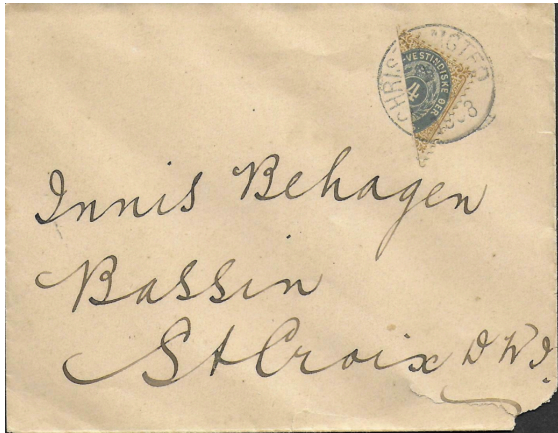 CHRIS NSTED
VESTINDISKE ØER
4
Innis Behagen
Bassin
St Croix D W I.